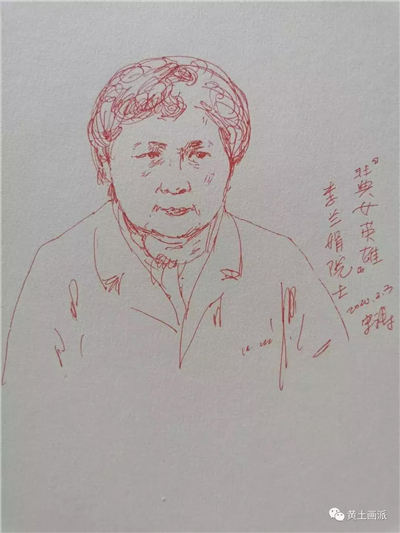 典女英雄"
李兰娟院士
2020.2.3
黄土画派